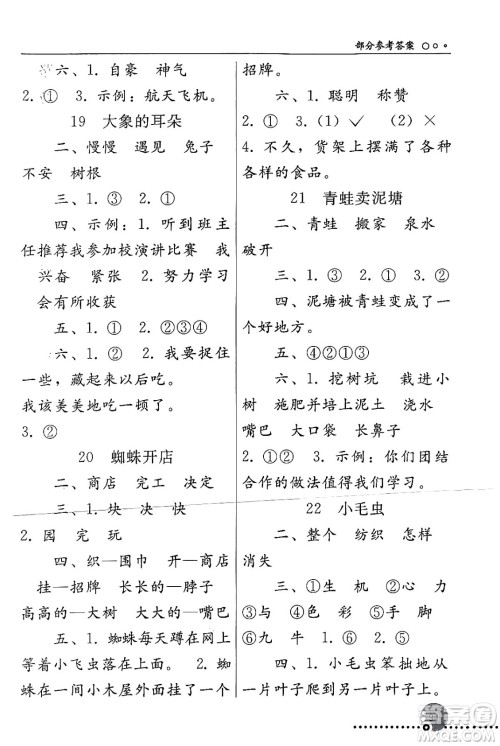 部分参考答案
六、1. 自豪 神气
2. ① 3. 示例：航天飞机。
19 大象的耳朵
二、慢慢 遇见 兔子
不安 树根
三、1. ③ 2. ④
四、示例：1. 听到班主
任推荐我参加校演讲比赛 我
兴奋 紧张 2. 努力学习
会有所收获
五、1. ① 2. ①②④③
六、1. ② 2. 我要捉住
一些，藏起来以后吃。
我该美美地吃一顿了。
3. ②
20 蜘蛛开店
二、商店 完工 决定
三、1. 块 决 快
2. 园 完 玩
四、织—围巾 开—商店
挂—招牌 长长的—脖子
高高的—树 大大的—嘴巴
五、1. 蜘蛛每天蹲在网上
等着小飞虫落在上面 2. 蜘
蛛在一间小木屋外面挂了一个
招牌。
六、1. 聪明 称赞
2. ① 3. (1) ✓ (2) ×
4. 不久，货架上摆满了各种各
样的食品。
21 青蛙卖泥塘
二、青蛙 搬家 泉水
破开
三、1. ① 2. ④
四、泥塘被青蛙变成了一个
好地方。
五、④②①③
六、1. 挖树坑 栽进小
树 施肥并培上泥土 浇水
嘴巴 大口袋 长鼻子
2. ①② 3. 示例：你们团结
合作的做法值得我们学习。
22 小毛虫
二、整个 纺织 怎样
消失
三、1. ①生 机 ②心 力
③与 ④色 ⑤手 脚
⑥九 牛 2. ①⑥ ②⑤
四、1. 小毛虫笨拙地从
一片叶子爬到另一片叶子上